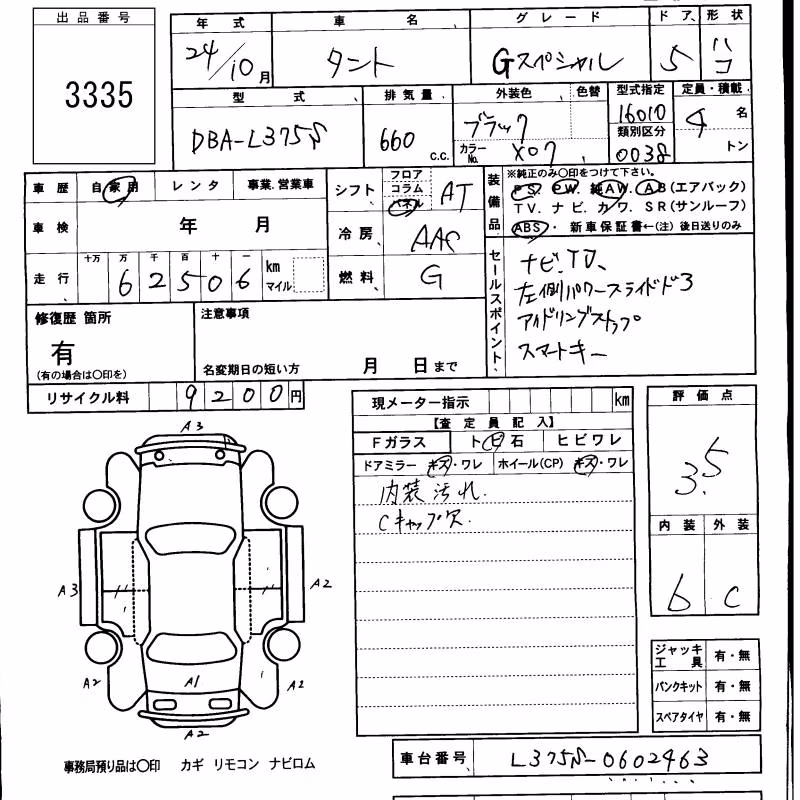 出品番号
3335
年式
24/10月
車名
タント
グレード
Gスペシャル
ドア、
5
形状
ハコ
型式
DBA-L375S
排気量
660 c.c.
外装色
ブラック
色替
カラーNo.
X07
型式指定
16010
類別区分
0038
定員・積載
4 名
トン
車歴
自家用
レンタ
事業.営業車
シフト
フロア
コラム
パネル
AT
装備品
※純正のみ〇印をつけて下さい。
PS. PW. 純AW. AB(エアバック)
TV. ナビ. カワ. SR(サンルーフ)
ABS・ 新車保証書←(注) 後日送りのみ
車検
年 月
冷房
AAC
走行
十万 万 千 百 十 一
6 2 5 0 6
km
マイル
燃料
G
セールスポイント
ナビ、TV、
左側パワースライドドア
アイドリングストップ
スマートキー
修復歴 箇所
有
(有の場合は〇印を)
注意事項
名変期日の短い方 月 日まで
リサイクル料
9 2 0 0 円
現メーター指示
km
【査定員記入】
Fガラス
トビ石
ヒビワレ
ドアミラー キズ・ワレ
ホイール(CP) キズ・ワレ
内装 汚れ.
Cキャップ欠.
評価点
3.5
内装
外装
b
C
A3
A3
A2
A2
A1
A2
A2
ジャッキ工具 有・無
パンクキット 有・無
スペアタイヤ 有・無
車台番号
L375S-0602463
事務局預り品は〇印 カギ リモコン ナビロム